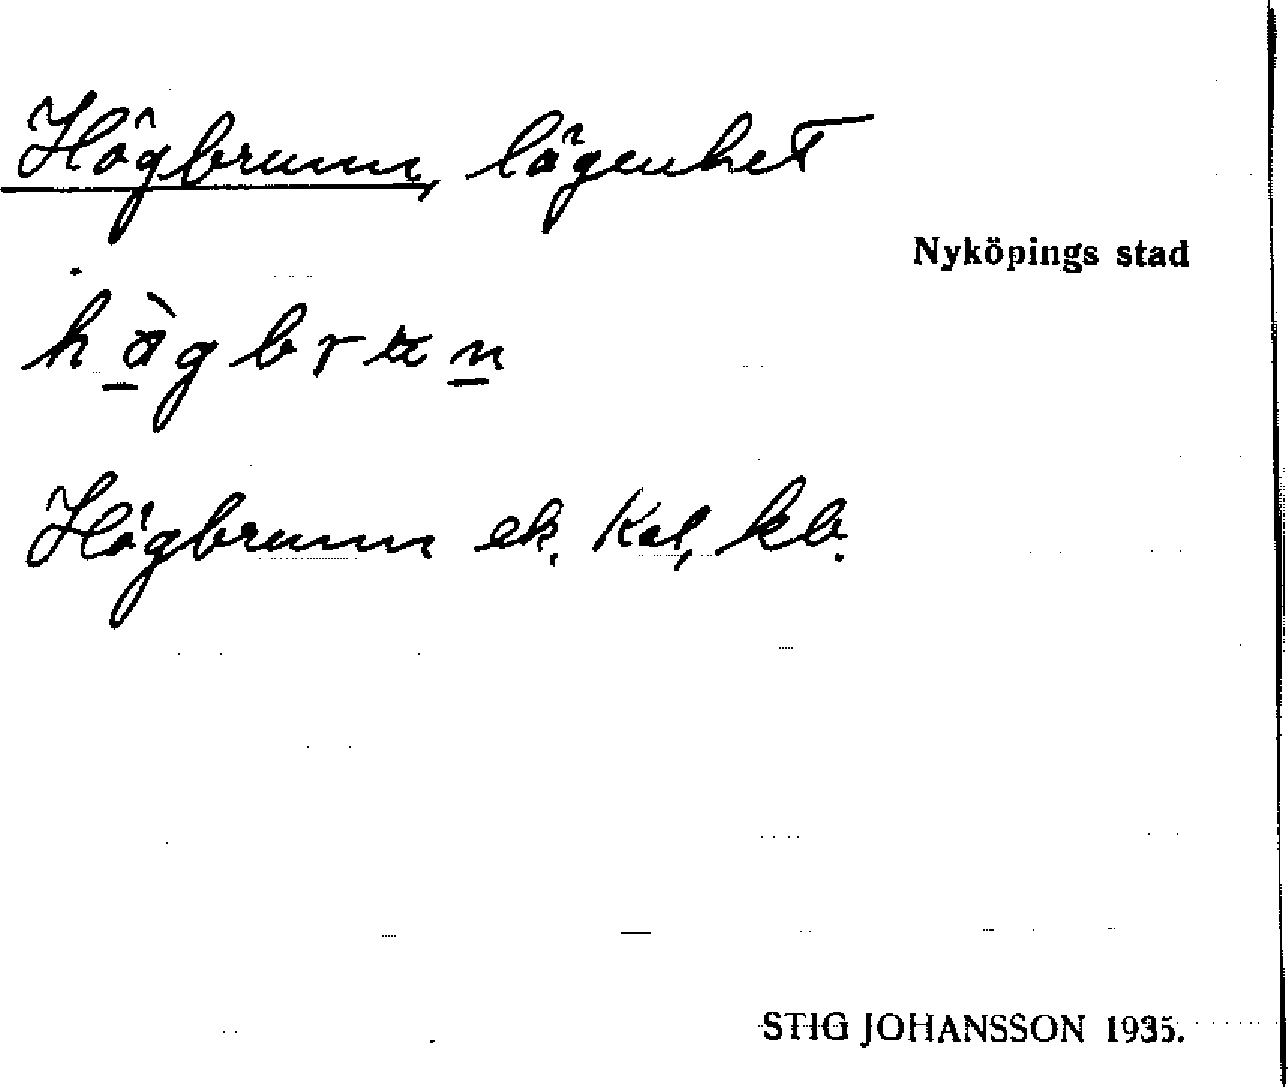 Högbrunn, lägenhet
Nyköpings stad
Högbrunn ek. Kal, kb.
STIG JOHANSSON 1935.